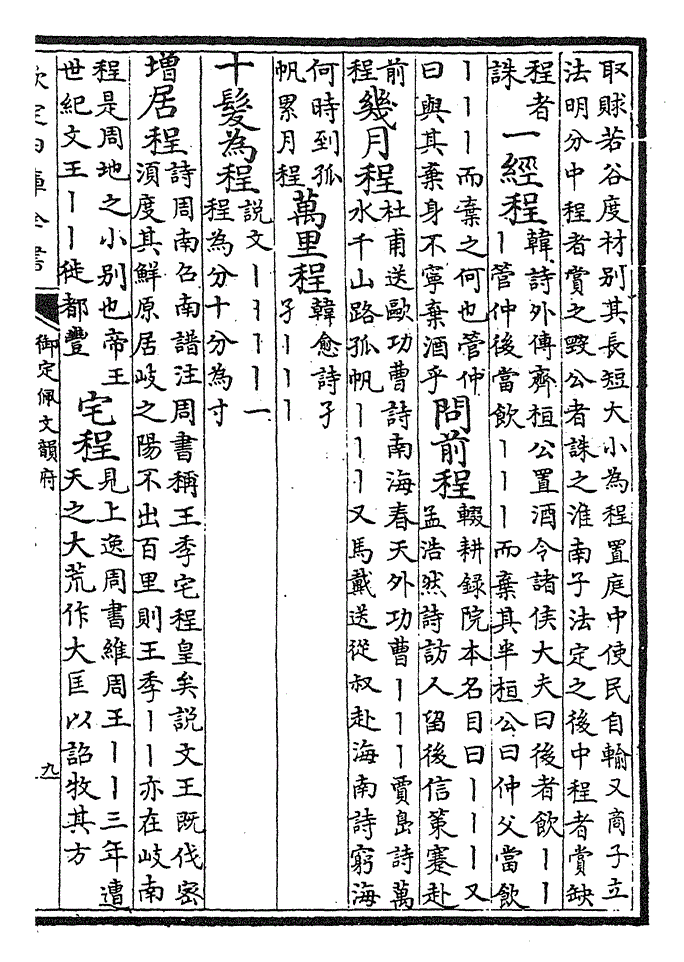 取賕若谷度材别其長短大小為程置庭中使民自輸又商子立
法明分中程者賞之毀公者誅之淮南子法定之後中程者賞缺
程者
誅
一經程
韓詩外傳齊桓公置酒令諸侯大夫曰後者飲丨丨
丨管仲後當飲丨丨丨而棄其半桓公曰仲父當飲
丨丨丨而棄之何也管仲
曰與其棄身不寧棄酒乎
問前程
輟耕録院本名目曰丨丨丨又
孟浩然詩訪人留後信策蹇赴
前
程
幾月程
杜甫送歐功曹詩南海春天外功曹丨丨丨賈島詩萬
水千山路孤帆丨丨丨又馬戴送從叔赴海南詩窮海
何時到孤
帆累月程
萬里程
韓愈詩孑
孑丨丨丨
十髮為程
説文丨丨丨丨一
程為分十分為寸
增居程
詩周南召南譜注周書稱王季宅程皇矣説文王既伐密
須度其鮮原居岐之陽不出百里則王季丨丨亦在岐南
程是周地之小别也帝王
世紀文王丨丨徙都豐
宅程
見上逸周書維周王丨丨三年遭
天之大荒作大匡以詔牧其方
欽定四庫全書
御定佩文韻府
九